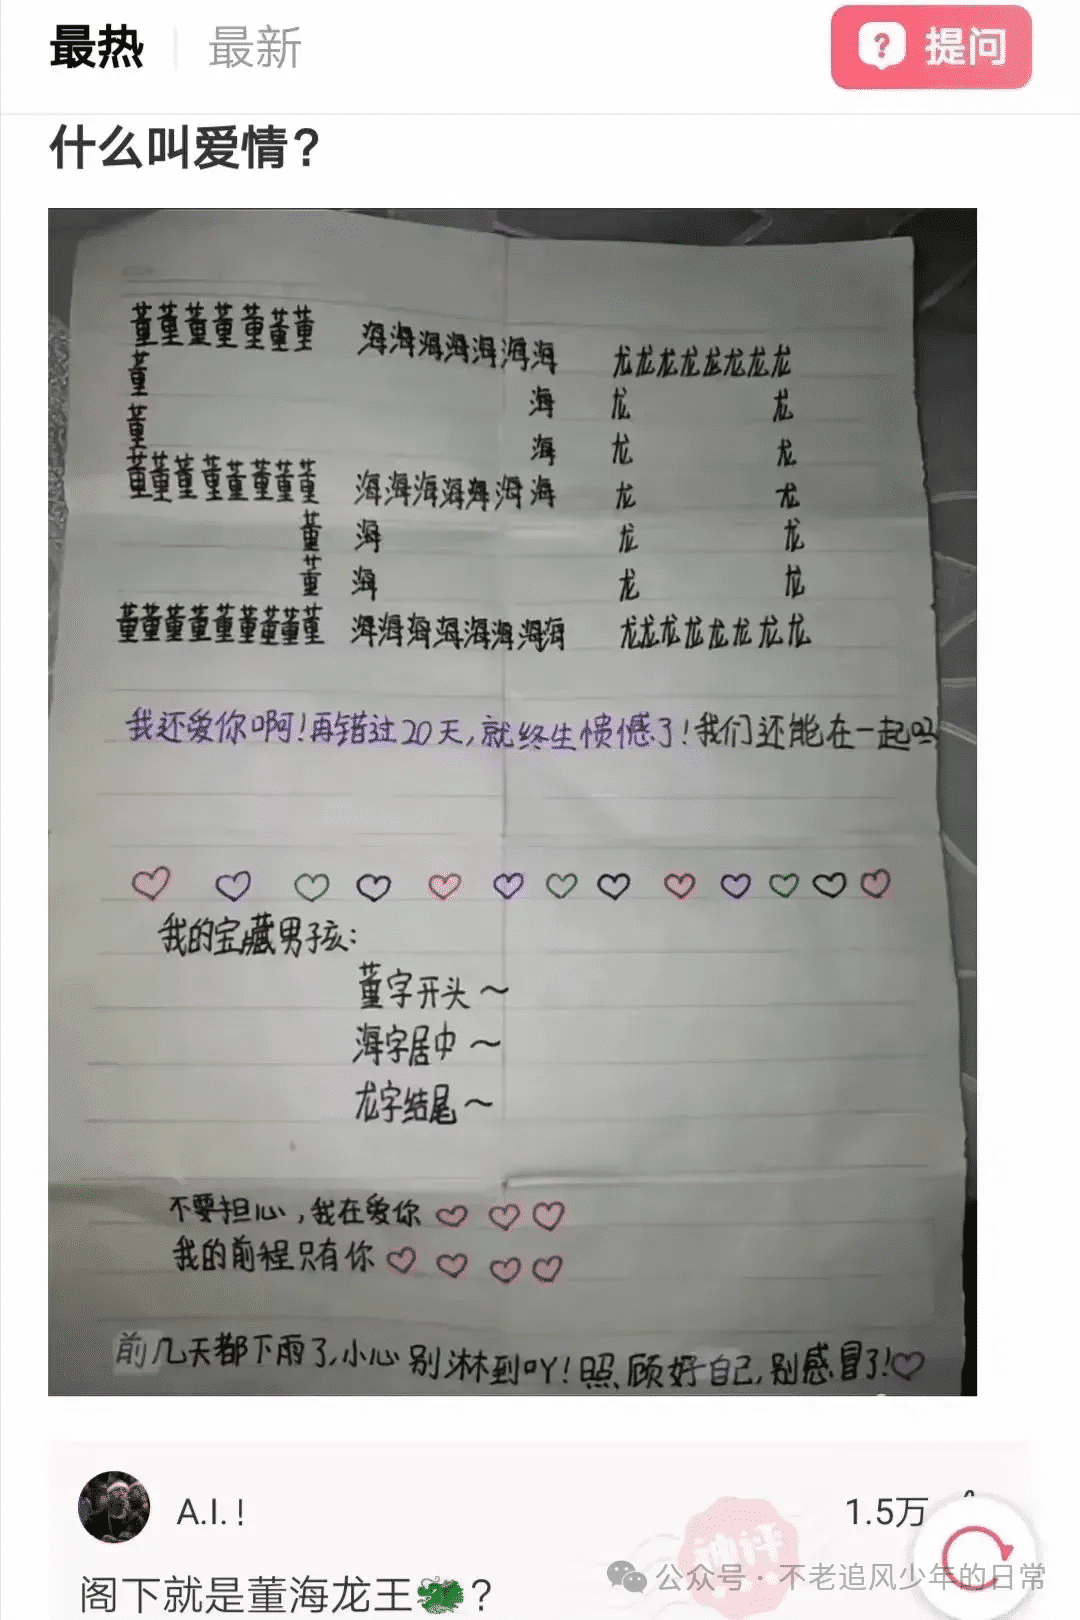 最热 最新 提问
什么叫爱情?
董董董董董董董 海海海海海海海 龙龙龙龙龙龙龙龙
董 海 龙 龙
董 海 龙 龙
董董董董董董董董 海海海海海海海 龙 龙
董 海 龙 龙
董 海 龙 龙
董董董董董董董董董 海海海海海海海海 龙龙龙龙龙龙龙龙
我还爱你啊!再错过20天,就终生愦憾了!我们还能在一起吗
我的宝藏男孩:
董字开头~
海字居中~
龙字结尾~
不要担心,我在爱你
我的前程只有你
前几天都下雨了,小心别淋到吖!照顾好自己,别感冒了!
A.I.! 1.5万
神评
阁下就是董海龙王🐲?
公众号·不老追风少年的日常